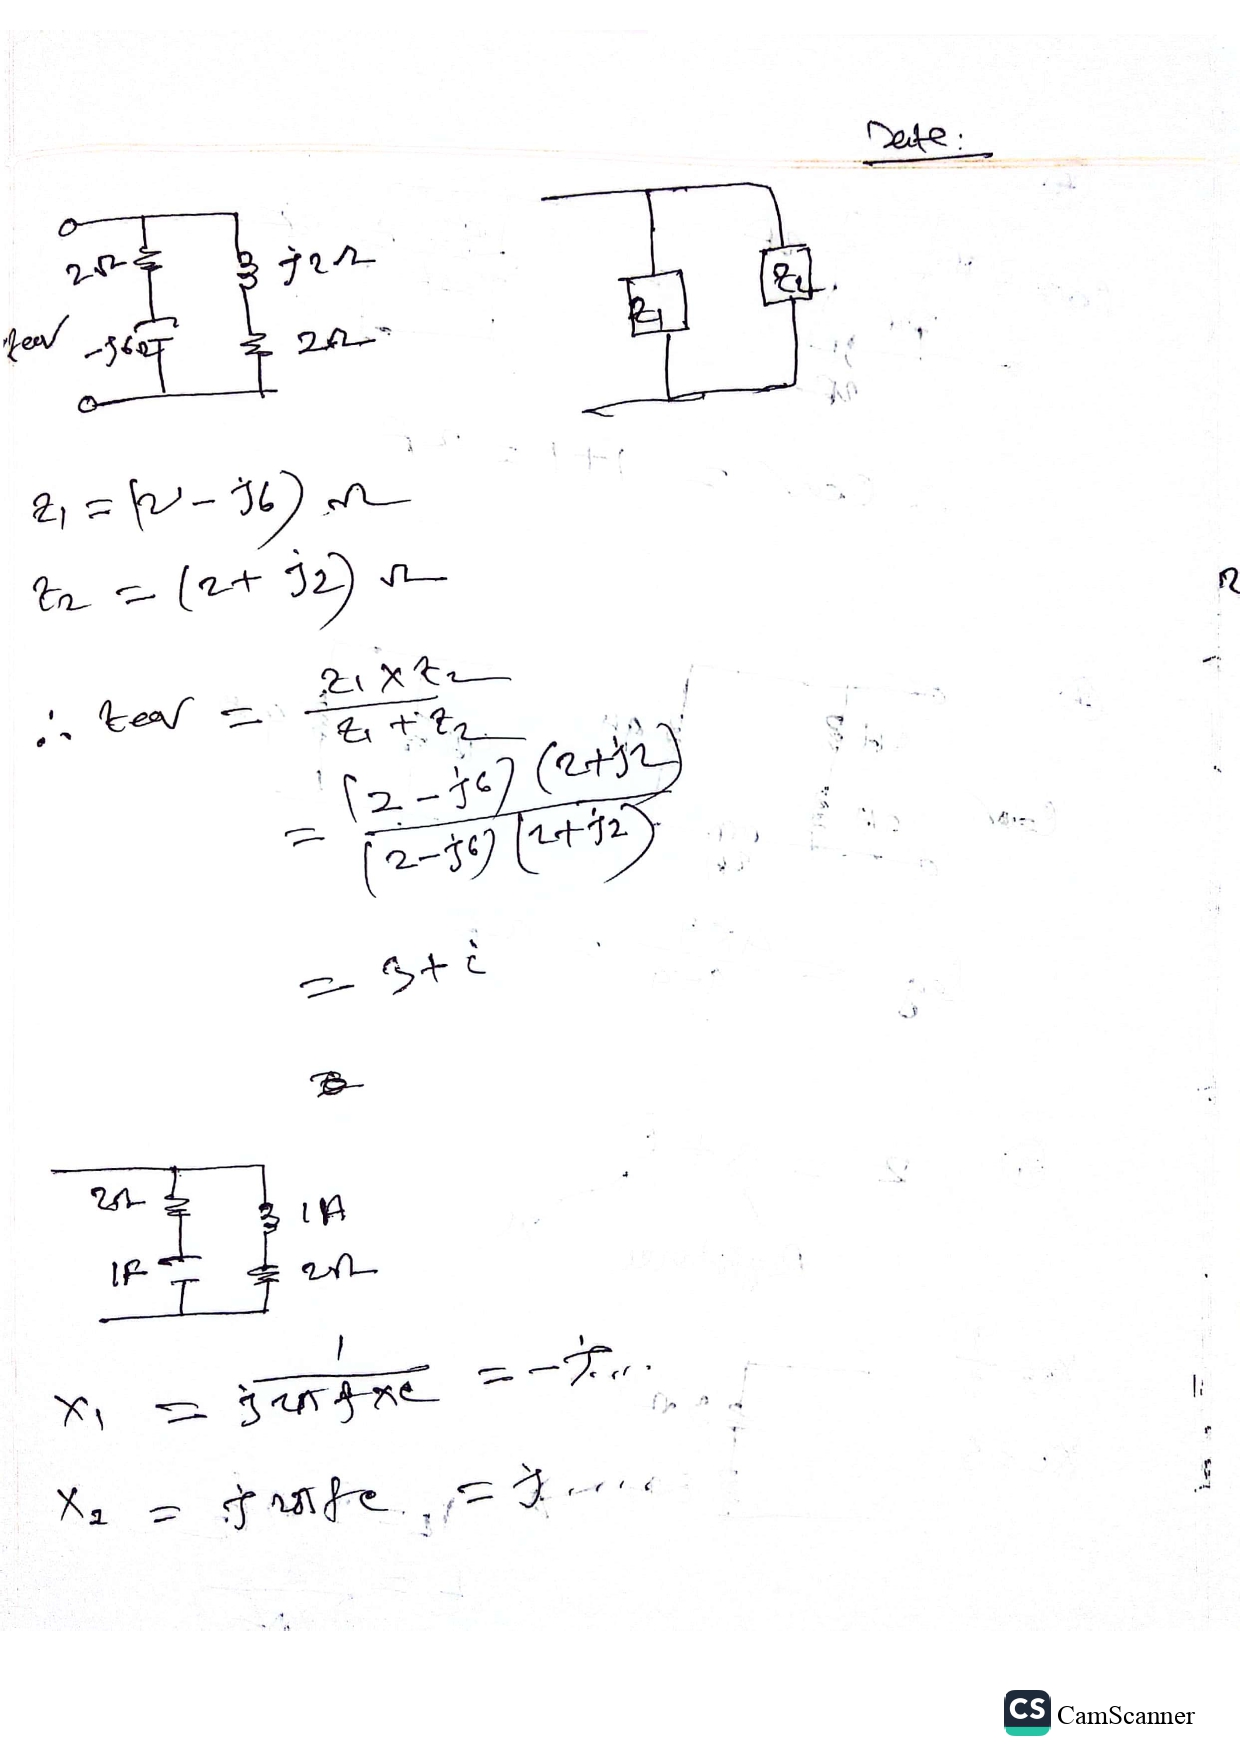 Date:
2Ω
j2Ω
-j6Ω
2Ω
Z1
Z2
Z1 = (2 - j6) Ω
Z2 = (2 + j2) Ω
∴ Zeqv = Z1 × Z2 / Z1 + Z2
= (2 - j6) (2 + j2) / (2 - j6) (2 + j2)
= 3 + i
2Ω
1H
1F
2Ω
X1 = 1 / j2πf×c = -j...
X2 = j2πfc = j.....
CS CamScanner